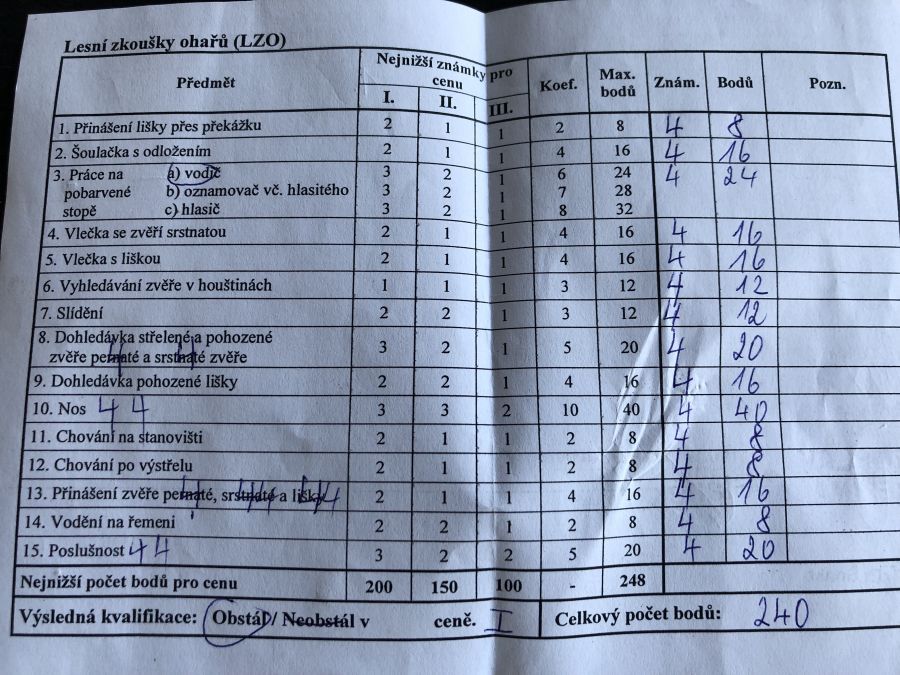 Lesní zkoušky ohařů (LZO)
Předmět Nejnižší známky pro cenu Koef. Max. bodů Znám. Bodů Pozn.
I. II. III.
1. Přinášení lišky přes překážku 2 1 1 2 8 4 8
2. Šoulačka s odložením 2 1 1 4 16 4 16
3. Práce na a) vodič 3 2 1 6 24 4 24
pobarvené b) oznamovač vč. hlasitého 3 2 1 7 28
stopě c) hlasič 3 2 1 8 32
4. Vlečka se zvěří srstnatou 2 1 1 4 16 4 16
5. Vlečka s liškou 2 1 1 4 16 4 16
6. Vyhledávání zvěře v houštinách 1 1 1 3 12 4 12
7. Slídění 2 2 1 3 12 4 12
8. Dohledávka střelené a pohozené
zvěře pernaté a srstnaté zvěře 4 4 3 2 1 5 20 4 20
9. Dohledávka pohozené lišky 2 2 1 4 16 4 16
10. Nos 4 4 3 3 2 10 40 4 40
11. Chování na stanovišti 2 1 1 2 8 4 8
12. Chování po výstřelu 2 1 1 2 8 4 8
13. Přinášení zvěře pernaté, srstnaté a lišky 2 1 1 4 16 4 16
14. Vodění na řemeni 2 2 1 2 8 4 8
15. Poslušnost 4 4 3 2 2 5 20 4 20
Nejnižší počet bodů pro cenu 200 150 100 - 248
Výsledná kvalifikace: Obstál/ Neobstál v ceně. I Celkový počet bodů: 240